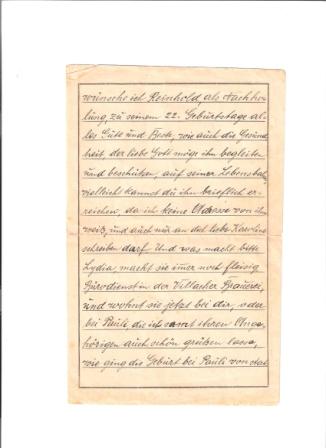 wünsche ich Reinhold, als Nachho-
lung, zu seinem 22. Geburtstage al-
les Gute und Beste, wie auch die Gesund
heit, der liebe Gott möge ihn begleiten
und beschützen, auf seiner Lebensbah,
vielleicht kannst du ihn brieflich er-
reichen, da ich keine Adresse von ihm
weiß, und auch nur an dich liebe Karoline
schreiben darf. Und was macht bitte
Lydia, macht sie imer noch fleissig
Bürodienst in der Villacher Brauerei,
und wohnt sie jetzt bei dir, oder
bei Pauli, die ich samt ihren Ange-
hörigen auch schön grüßen lasse,
wie ging die Geburt bei Pauli von